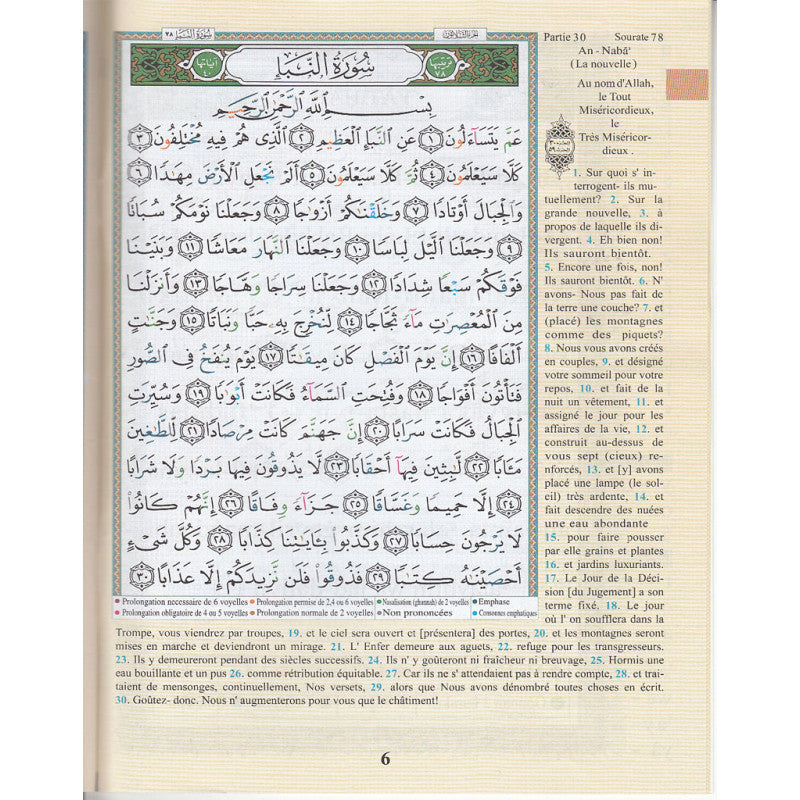 سورة النبإ ٧٨
الجزء الثلاثون
آياتها ٤٠
سُورَةُ النَّبَإِ
ترتيبها ٧٨
بِسْمِ اللَّهِ الرَّحْمَٰنِ الرَّحِيمِ
عَمَّ يَتَسَاءَلُونَ ١ عَنِ النَّبَإِ الْعَظِيمِ ٢ الَّذِي هُمْ فِيهِ مُخْتَلِفُونَ ٣
كَلَّا سَيَعْلَمُونَ ٤ ثُمَّ كَلَّا سَيَعْلَمُونَ ٥ أَلَمْ نَجْعَلِ الْأَرْضَ مِهَٰدًا ٦
وَالْجِبَالَ أَوْتَادًا ٧ وَخَلَقْنَٰكُمْ أَزْوَٰجًا ٨ وَجَعَلْنَا نَوْمَكُمْ سُبَاتًا
٩ وَجَعَلْنَا الَّيْلَ لِبَاسًا ١٠ وَجَعَلْنَا النَّهَارَ مَعَاشًا ١١ وَبَنَيْنَا
فَوْقَكُمْ سَبْعًا شِدَادًا ١٢ وَجَعَلْنَا سِرَاجًا وَهَّاجًا ١٣ وَأَنزَلْنَا
مِنَ الْمُعْصِرَٰتِ مَاءً ثَجَّاجًا ١٤ لِّنُخْرِجَ بِهِ حَبًّا وَنَبَاتًا ١٥ وَجَنَّٰتٍ
أَلْفَافًا ١٦ إِنَّ يَوْمَ الْفَصْلِ كَانَ مِيقَٰتًا ١٧ يَوْمَ يُنفَخُ فِي الصُّورِ
فَتَأْتُونَ أَفْوَاجًا ١٨ وَفُتِحَتِ السَّمَاءُ فَكَانَتْ أَبْوَٰبًا ١٩ وَسُيِّرَتِ
الْجِبَالُ فَكَانَتْ سَرَابًا ٢٠ إِنَّ جَهَنَّمَ كَانَتْ مِرْصَادًا ٢١ لِّلطَّٰغِينَ
مَـَٔابًا ٢٢ لَّٰبِثِينَ فِيهَا أَحْقَابًا ٢٣ لَّا يَذُوقُونَ فِيهَا بَرْدًا وَلَا شَرَابًا
٢٤ إِلَّا حَمِيمًا وَغَسَّاقًا ٢٥ جَزَاءً وِفَاقًا ٢٦ إِنَّهُمْ كَانُوا
لَا يَرْجُونَ حِسَابًا ٢٧ وَكَذَّبُوا بِـَٔايَٰتِنَا كِذَّابًا ٢٨ وَكُلَّ شَيْءٍ
أَحْصَيْنَٰهُ كِتَٰبًا ٢٩ فَذُوقُوا فَلَن نَّزِيدَكُمْ إِلَّا عَذَابًا ٣٠
Prolongation necessaire de 6 voyelles Prolongation permise de 2,4 ou 6 voyelles Nasalisation (ghunnah) de 2 voyelles Emphase
Prolongation obligatoire de 4 ou 5 voyelles Prolongation normale de 2 voyelles Non prononcées Consonnes emphatiques
Partie 30 Sourate 78
An - Nabâ'
(La nouvelle)
Au nom d'Allah,
le Tout
Miséricordieux,
le
Très Miséricor-
dieux .
1. Sur quoi s' in-
terrogent- ils mu-
tuellement? 2. Sur la
grande nouvelle, 3. à
propos de laquelle ils di-
vergent. 4. Eh bien non!
Ils sauront bientôt.
5. Encore une fois, non!
Ils sauront bientôt. 6. N'
avons- Nous pas fait de
la terre une couche? 7. et
(placé) les montagnes
comme des piquets?
8. Nous vous avons créés
en couples, 9. et désigné
votre sommeil pour votre
repos, 10. et fait de la
nuit un vêtement, 11. et
assigné le jour pour les
affaires de la vie, 12. et
construit au-dessus de
vous sept (cieux) re-
nforcés, 13. et [y] avons
placé une lampe (le sol-
eil) très ardente, 14. et
fait descendre des nuées
une eau abondante
15. pour faire pousser
par elle grains et plantes
16. et jardins luxuriants.
17. Le Jour de la Déci-
sion [du Jugement] a son
terme fixé. 18. Le jour
où l' on soufflera dans la
Trompe, vous viendrez par troupes, 19. et le ciel sera ouvert et [présentera] des portes, 20. et les montagnes seront
mises en marche et deviendront un mirage. 21. L' Enfer demeure aux aguets, 22. refuge pour les transgresseurs.
23. Ils y demeureront pendant des siècles successifs. 24. Ils n' y goûteront ni fraîcheur ni breuvage, 25. Hormis une
eau bouillante et un pus 26. comme rétribution équitable. 27. Car ils ne s' attendaient pas à rendre compte, 28. et trai-
taient de mensonges, continuellement, Nos versets, 29. alors que Nous avons dénombré toutes choses en écrit.
30. Goûtez- donc. Nous n' augmenterons pour vous que le châtiment!
6